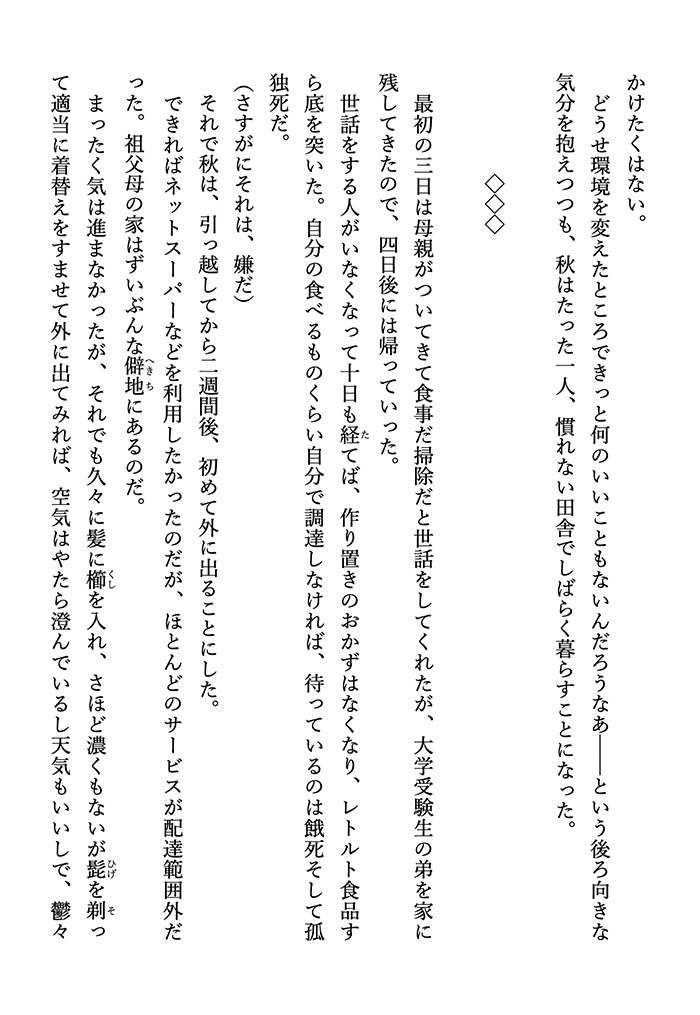 かけたくはない。
　どうせ環境を変えたところできっと何のいいこともないんだろうなあ――という後ろ向きな
気分を抱えつつも、秋はたった一人、慣れない田舎でしばらく暮らすことになった。
◇◇◇
　最初の三日は母親がついてきて食事だ掃除だと世話をしてくれたが、大学受験生の弟を家に
残してきたので、四日後には帰っていった。
　世話をする人がいなくなって十日も経てば、作り置きのおかずはなくなり、レトルト食品す
ら底を突いた。自分の食べるものくらい自分で調達しなければ、待っているのは餓死そして孤
独死だ。
（さすがにそれは、嫌だ）
　それで秋は、引っ越してから二週間後、初めて外に出ることにした。
　できればネットスーパーなどを利用したかったのだが、ほとんどのサービスが配達範囲外だ
った。祖父母の家はずいぶんな僻地にあるのだ。
　まったく気は進まなかったが、それでも久々に髪に櫛を入れ、さほど濃くもないが髭を剃っ
て適当に着替えをすませて外に出てみれば、空気はやたら澄んでいるし天気もいいしで、鬱々